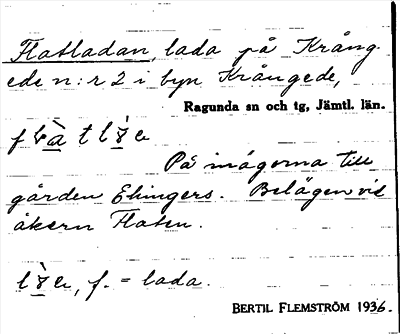 Flatladan, lada på Krång
ede n:r 2 i byn Krångede,
Ragunda sn och tg, Jämtl. län.
På inägorna till
gården Ehingers. Belägen vid
åkern Flaten.
f. = lada.
BERTIL FLEMSTRÖM 1936.